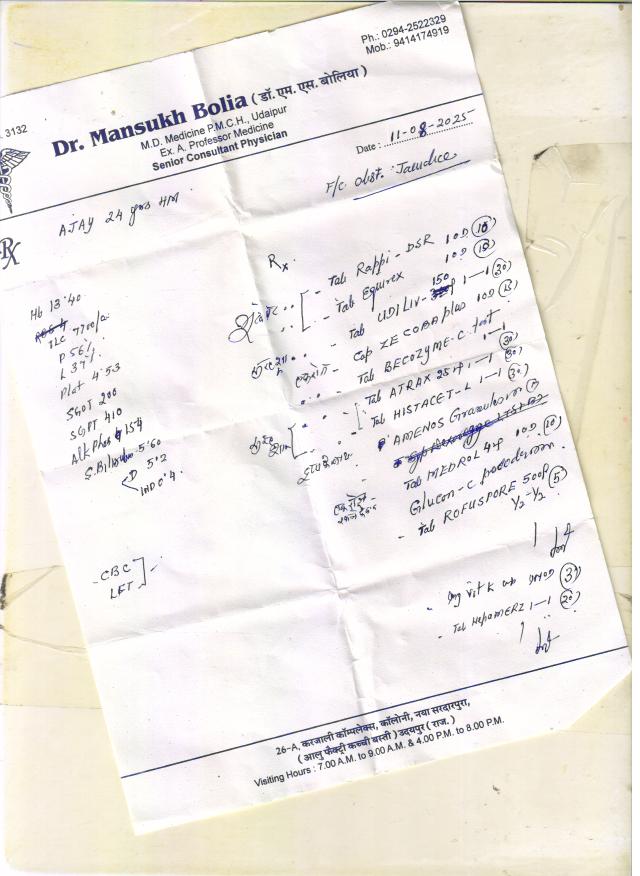 Ph.: 0294-2522329
Mob.: 9414174919
3132
Dr. Mansukh Bolia ( डॉ. एम. एस. बोलिया )
M.D. Medicine P.M.C.H., Udaipur
Ex. A. Professor Medicine
Senior Consultant Physician
Date : 11-08-2025
F/c Obst. Jaundice
AJAY 24 yrs HM
Rx
Rx
Hb 13.40
TLC 7700/c
P 56%
L 37%
Plat 4.53
SGOT 200
SGPT 410
Alk Phos 154
S. Bilirubin 5.60
D 5.2
IND 0.4
CBC
LFT
Tab Rappi-DSR 1OD (10)
Tab Equirex 1OD (10)
Tab UDILIV 150 1-1 (20)
Cap ZECOBA plus 1OD
Tab BECOZYME-C
Tab ATRAX 25 1-1
Tab HISTACET-L 1-1
AMENOS Granules
Tab MEDROL 4 1OD (10)
Glucon-C
Tab ROFUSPORE 500 (5)
½-½
Inj Vit K
Tab HepaMERZ 1-1 (20)
26-A, करजाली कॉम्पलेक्स, कॉलोनी, नया सरदारपुरा,
( आलु फैक्ट्री कच्ची बस्ती ) उदयपुर ( राज. )
Visiting Hours : 7.00 A.M. to 9.00 A.M. & 4.00 P.M. to 8.00 P.M.